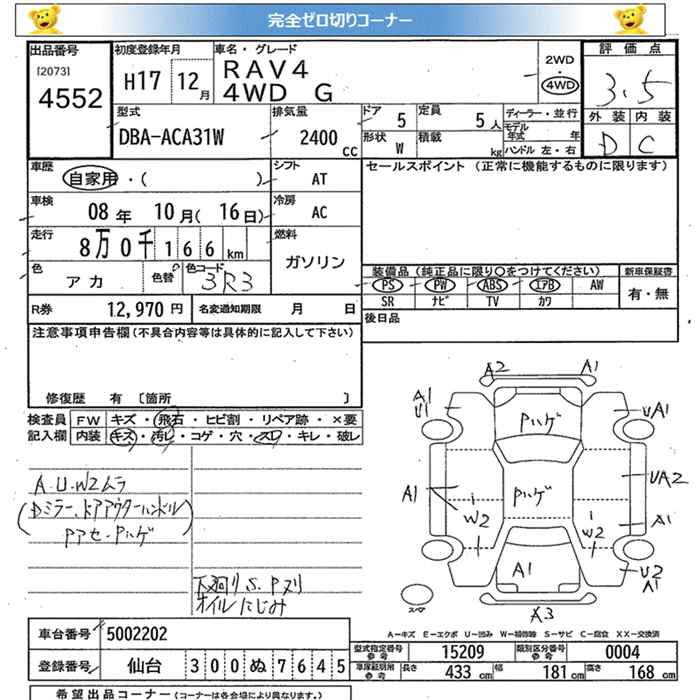 完全ゼロ切りコーナー
出品番号
[2073]
4552
初度登録年月
H17 12月
車名・グレード
RAV4
4WD G
2WD
4WD
評価点
3.5
外装 内装
D C
型式
DBA-ACA31W
排気量
2400
CC
ドア
5
定員
5人
形状
W
積載
kg
ディーラー・並行
モデル年式 年
ハンドル 左・右
車歴
自家用・( )
シフト
AT
セールスポイント (正常に機能するものに限ります)
車検
08年 10月( 16日)
冷房
AC
走行
8万0千166km
燃料
ガソリン
色
アカ
色替
色コード
3R3
装備品 (純正品に限り○をつけてください)
新車保証書
PS PW ABS エアB AW
SR ナビ TV カワ
有・無
R券
12,970円
名変通知期限 月 日
後日品
注意事項申告欄(不具合内容等は具体的に記入して下さい)
修復歴 有 [箇所 ]
検査員
記入欄
FW キズ・飛石・ヒビ割・リペア跡・×要
内装 キズ・汚レ・コゲ・穴・スレ・キレ・破レ
A.U.W2ムラ
(Dミラー、ドアアウターハンドル)
Pアセ・Pハゲ
下廻りS.Pヌリ
オイルにじみ
A2 A1
A1
U1
UA1
Pハゲ
A1
Pハゲ
UA2
W2
W2
A1
A1
U2
A1
スペア
A3
A-キズ E-エクボ U-凹み W-補修跡 S-サビ C-腐食 XX-交換済
車台番号
5002202
登録番号
仙台 300ぬ7645
型式指定番号
参考
15209
類別区分番号
参考
0004
車庫証明用
参考
長さ
433 cm
幅
181 cm
高さ
168 cm
希望出品コーナー(コーナーは各会場により異なります。)